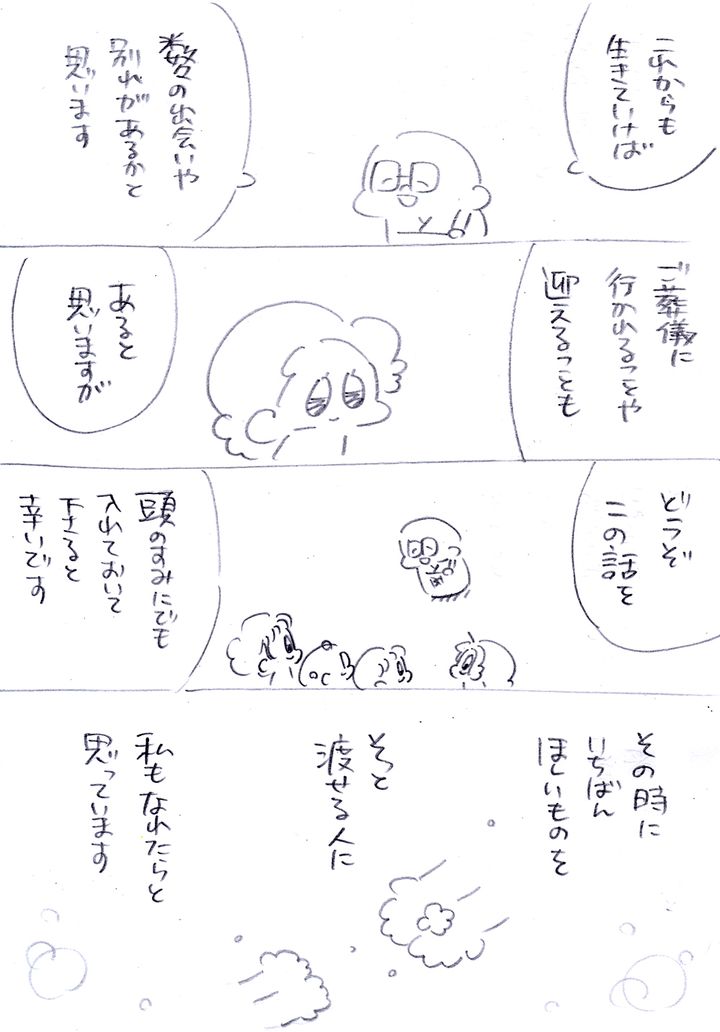 これからも
生きていけば
数々の出会いや
別れがあるかと
思います
ご葬儀に
行かれることや
迎えることも
あると
思いますが
どうぞ
この話を
頭のすみにでも
入れておいて
下さると
幸いです
その時に
いちばん
ほしいものを
そっと
渡せる人に
私もなれたらと
思っています